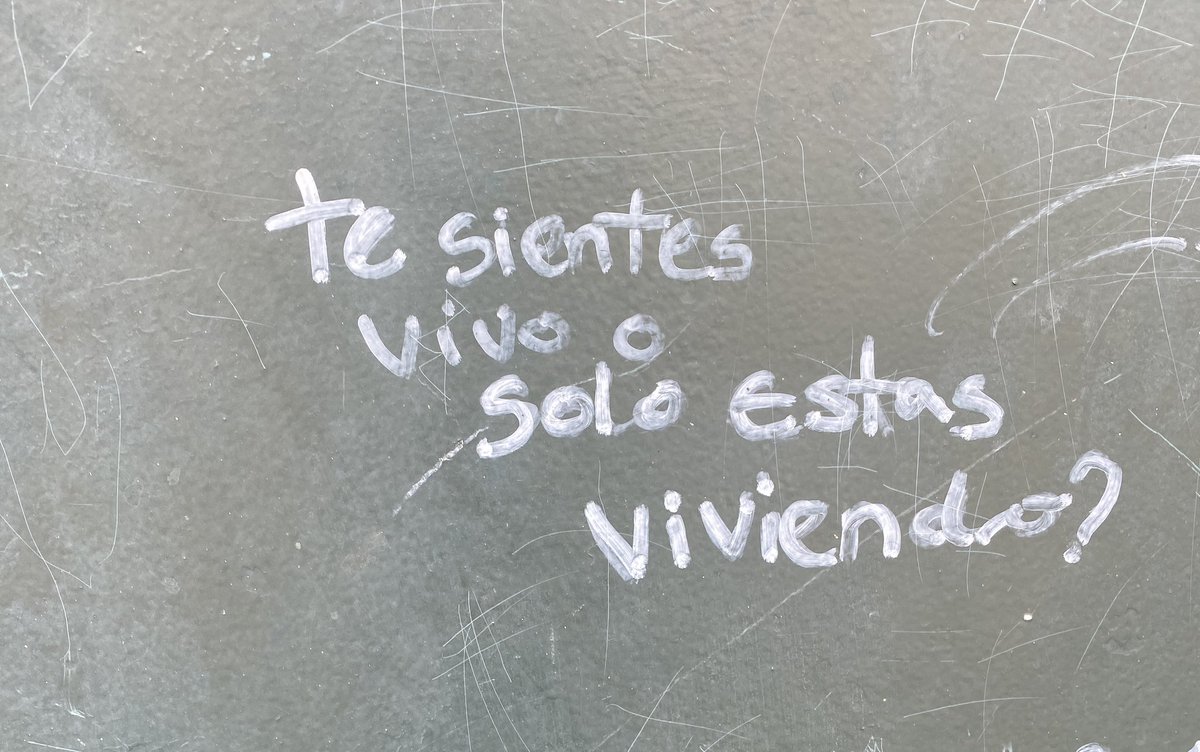 te sientes
vivo o
solo Estas
viviendo?